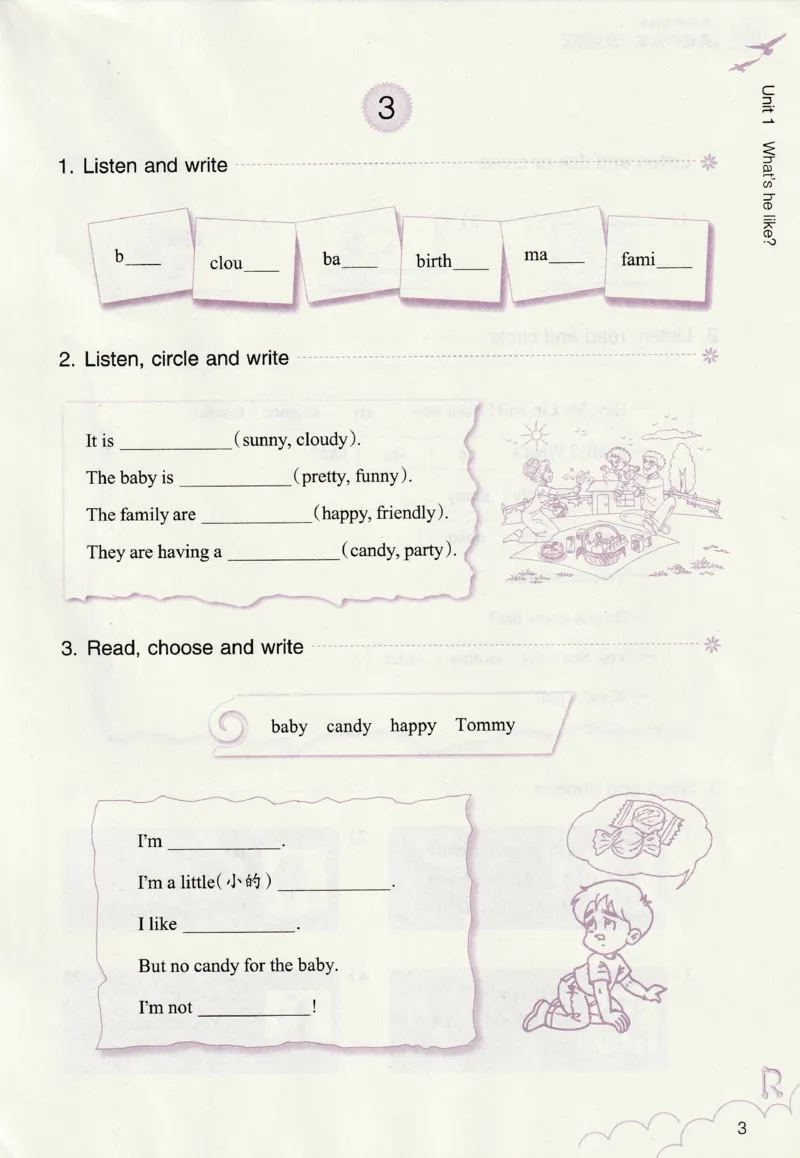 Unit 1 What's he like?
3
1. Listen and write
b____ clou____ ba____ birth____ ma____ fami____
2. Listen, circle and write
It is ____________(sunny, cloudy).
The baby is ____________(pretty, funny).
The family are ____________(happy, friendly).
They are having a ____________(candy, party).
3. Read, choose and write
baby candy happy Tommy
I'm ____________.
I'm a little(小的) ____________.
I like ____________.
But no candy for the baby.
I'm not ____________!
3